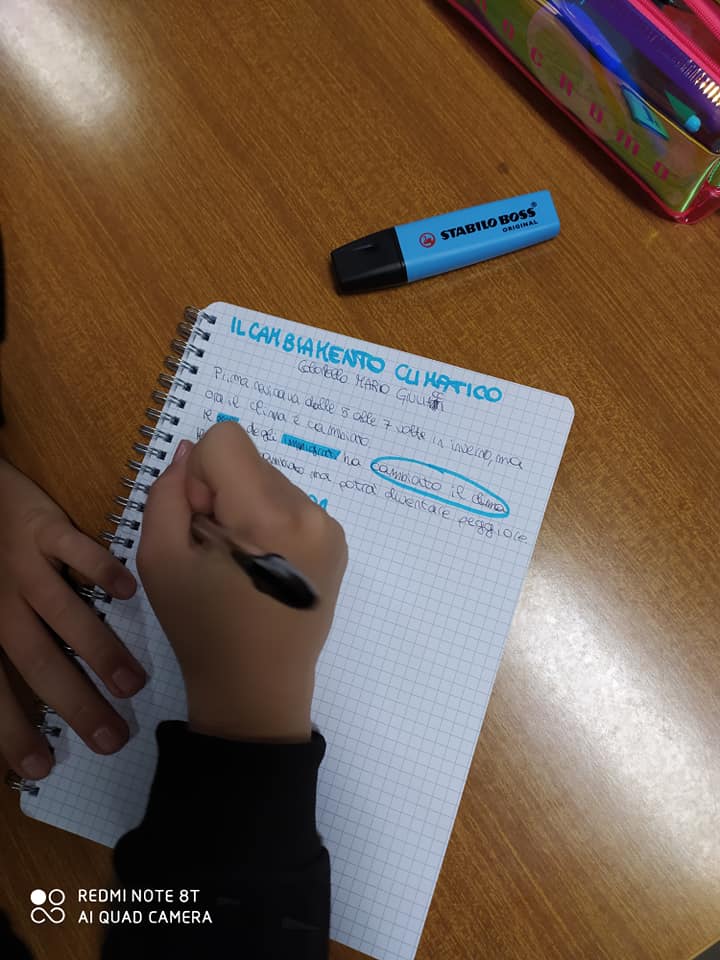 STABILO BOSS®
ORIGINAL
IL CAMBIAMENTO CLIMATICO
MARIO
Prima nevicava dalle 5 alle 7 volte in inverno, ma
ora il clima è cambiato.
le degli ha cambiato il clima
ma potrà diventare peggiore.
REDMI NOTE 8T
AI QUAD CAMERA